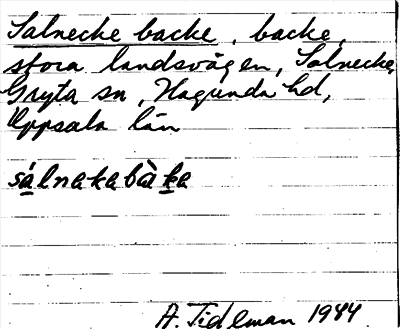 Salnecke backe, backe,
stora landsvägen, Salnecke,
Gryta sn, Hagunda hd,
Uppsala län
sálnakabàka
A. Tidelman 1944.